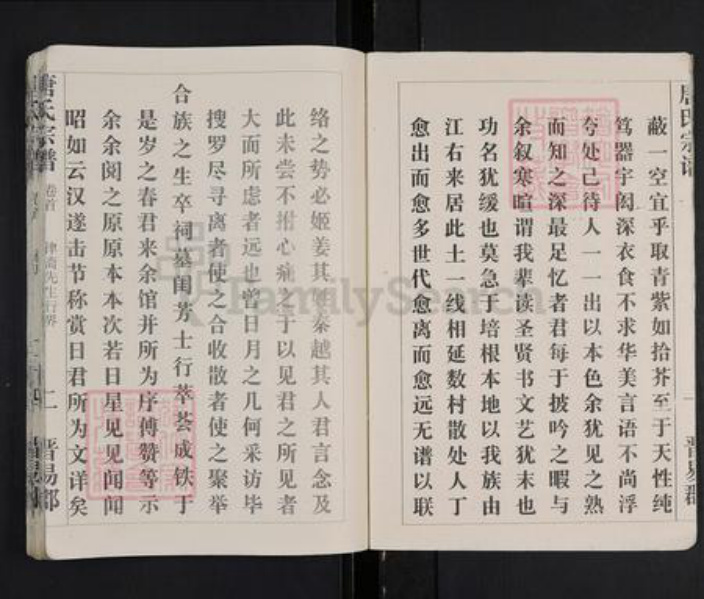 唐氏宗谱
蔽一空宜乎取青紫如拾芥至于天性纯
笃器宇闳深衣食不求华美言语不尚浮
夸处己待人一一出以本色余犹见之熟
而知之深最足忆者君每于披吟之暇与
余叙寒暄谓我辈读圣贤书文艺犹末也
功名犹缓也莫急于培根本地以我族由
江右来居此土一线相延数村散处人丁
愈出而愈多世代愈离而愈远无谱以联
络之势必姬姜其姓秦越其人君言念及
此未尝不拊心痛之于以见君之所见者
大而所虑者远也曾日月之几何采访毕
搜罗尽寻离者使之合收散者使之聚举
合族之生卒祠墓闺芳士行萃荟成铁于
是岁之春君来余馆并所为序傅赞等示
余余阅之原原本本次若日星见见闻闻
昭如云汉遂击节称赏日君所为文详矣
唐氏宗谱
卷首
先生行
二
晋易郡
FamilySearch